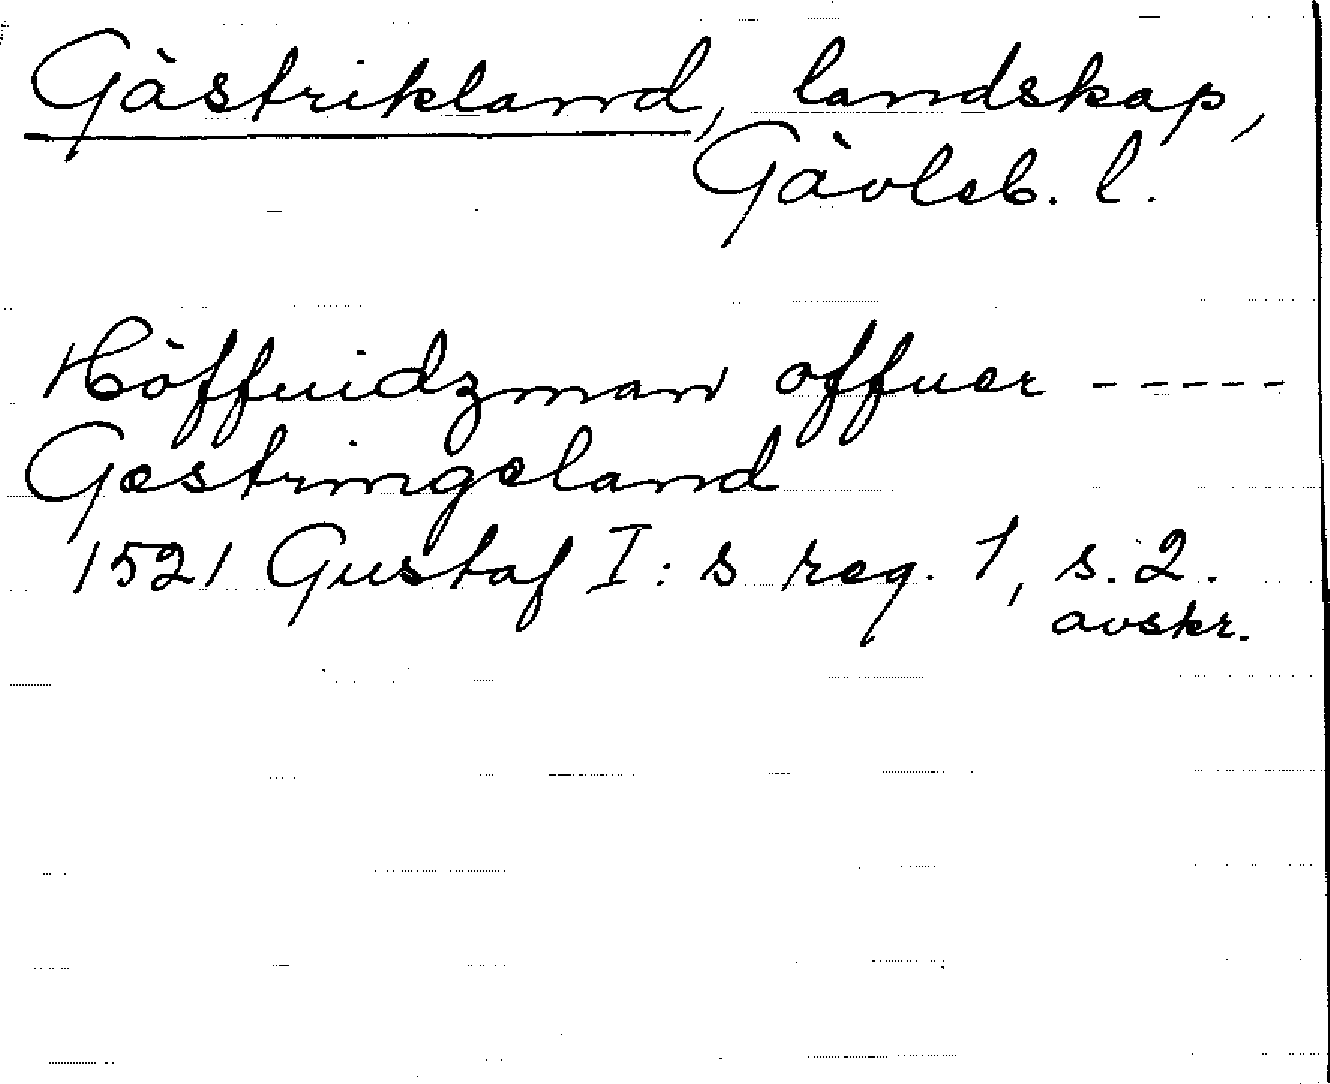 Gästrikland, landskap,
Gävleb. l.
Höffuidzman offuer -----
Gestringeland
1521 Gustaf I:s reg. 1, s. 2.
avskr.